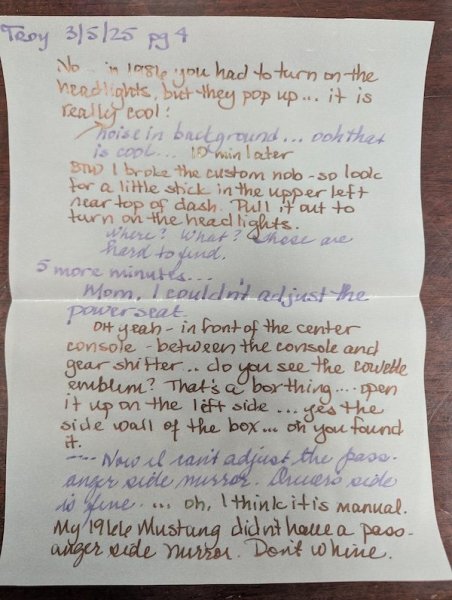 Troy 3/5/25 pg 4
No - in 1986 you had to turn on the
headlights, but they pop up... it is
really cool!
noise in background... ooh that
is cool... 10 min later
BTW I broke the custom nob - so look
for a little stick in the upper left
near top of dash. Pull it out to
turn on the headlights.
Where? What? These are
hard to find.
5 more minutes...
Mom, I couldn't adjust the
power seat.
OH yeah - in front of the center
console - between the console and
gear shifter... do you see the corvette
emblem? That's a box thing.... open
it up on the left side ... yes the
side wall of the box... oh you found
it.
---- Now I can't adjust the pass-
anger side mirror. Drivers side
is fine.... oh, I think it is manual.
My 1966 Mustang didn't have a pass-
anger side mirror. Don't whine.